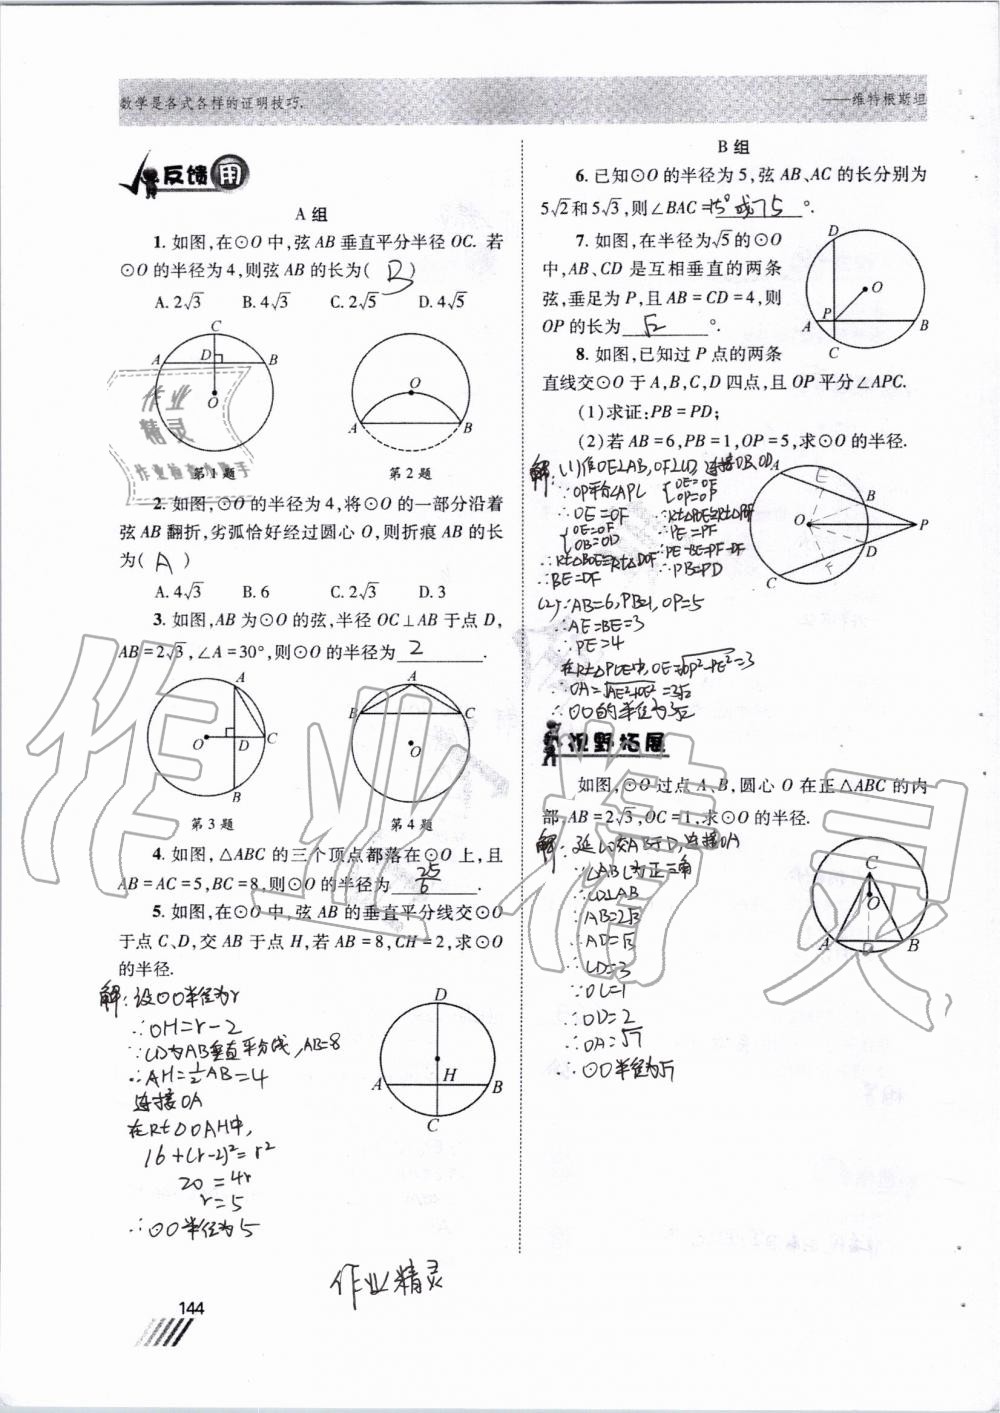 数学是各式各样的证明技巧.
——维特根斯坦
反馈用
A 组
1. 如图,在⊙O 中,弦 AB 垂直平分半径 OC. 若
⊙O 的半径为 4,则弦 AB 的长为( B )
A. 2√3 B. 4√3 C. 2√5 D. 4√5
C
A D B
O
第 1 题
O
A B
第 2 题
2. 如图,⊙O 的半径为 4,将⊙O 的一部分沿着
弦 AB 翻折,劣弧恰好经过圆心 O,则折痕 AB 的长
为( A )
A. 4√3 B. 6 C. 2√3 D. 3
3. 如图,AB 为⊙O 的弦,半径 OC⊥AB 于点 D,
AB=2√3,∠A=30°,则⊙O 的半径为 2 .
A
O D C
B
第 3 题
A
B C
O
第 4 题
4. 如图,△ABC 的三个顶点都落在⊙O 上,且
AB=AC=5,BC=8,则⊙O 的半径为 25/6 .
5. 如图,在⊙O 中,弦 AB 的垂直平分线交⊙O
于点 C、D,交 AB 于点 H,若 AB=8,CH=2,求⊙O
的半径.
解:设⊙O半径为r
∴OH=r-2
∵CD为AB垂直平分线,AB=8
∴AH=½AB=4
连接OA
在Rt△OAH中,
16+(r-2)²=r²
20=4r
r=5
∴⊙O半径为5
D
H
A B
C
作业精灵
144
B 组
6. 已知⊙O 的半径为 5,弦 AB、AC 的长分别为
5√2和 5√3,则∠BAC=15°或75°.
7. 如图,在半径为√5的⊙O
中,AB、CD 是互相垂直的两条
弦,垂足为 P,且 AB=CD=4,则
OP 的长为 √2 °.
D
O
P
A B
C
8. 如图,已知过 P 点的两条
直线交⊙O 于 A,B,C,D 四点,且 OP 平分∠APC.
(1)求证:PB=PD;
(2)若 AB=6,PB=1,OP=5,求⊙O 的半径.
解:(1)作OE⊥AB,OF⊥CD,连接OB,OD
∵OP平分∠APC
∴OE=OF
{OE=OF
OB=OD
∴Rt△BOE≌Rt△DOF
∴BE=DF
{OE=OF
OP=OP
∴Rt△POE≌Rt△POF
∴PE=PF
∴PE-BE=PF-DF
∴PB=PD
A E
B
O P
D
C F
(2)∵AB=6,PB=1,OP=5
∴AE=BE=3
∴PE=4
在Rt△POE中,OE=√OP²-PE²=3
∴OA=√AE²+OE²=3√2
∴⊙O的半径为3√2
视野拓展
如图,⊙O 过点 A、B,圆心 O 在正△ABC 的内
部,AB=2√3,OC=1,求⊙O 的半径.
解:延CO交AB于D,连接OA
∵△ABC为正三角
∴CD⊥AB
∵AB=2√3
∴AD=√3
∴CD=3
∵OC=1
∴OD=2
∴OA=√7
∴⊙O半径为√7
C
O
A D B
作业精灵
作业
精灵
作业检查小助手